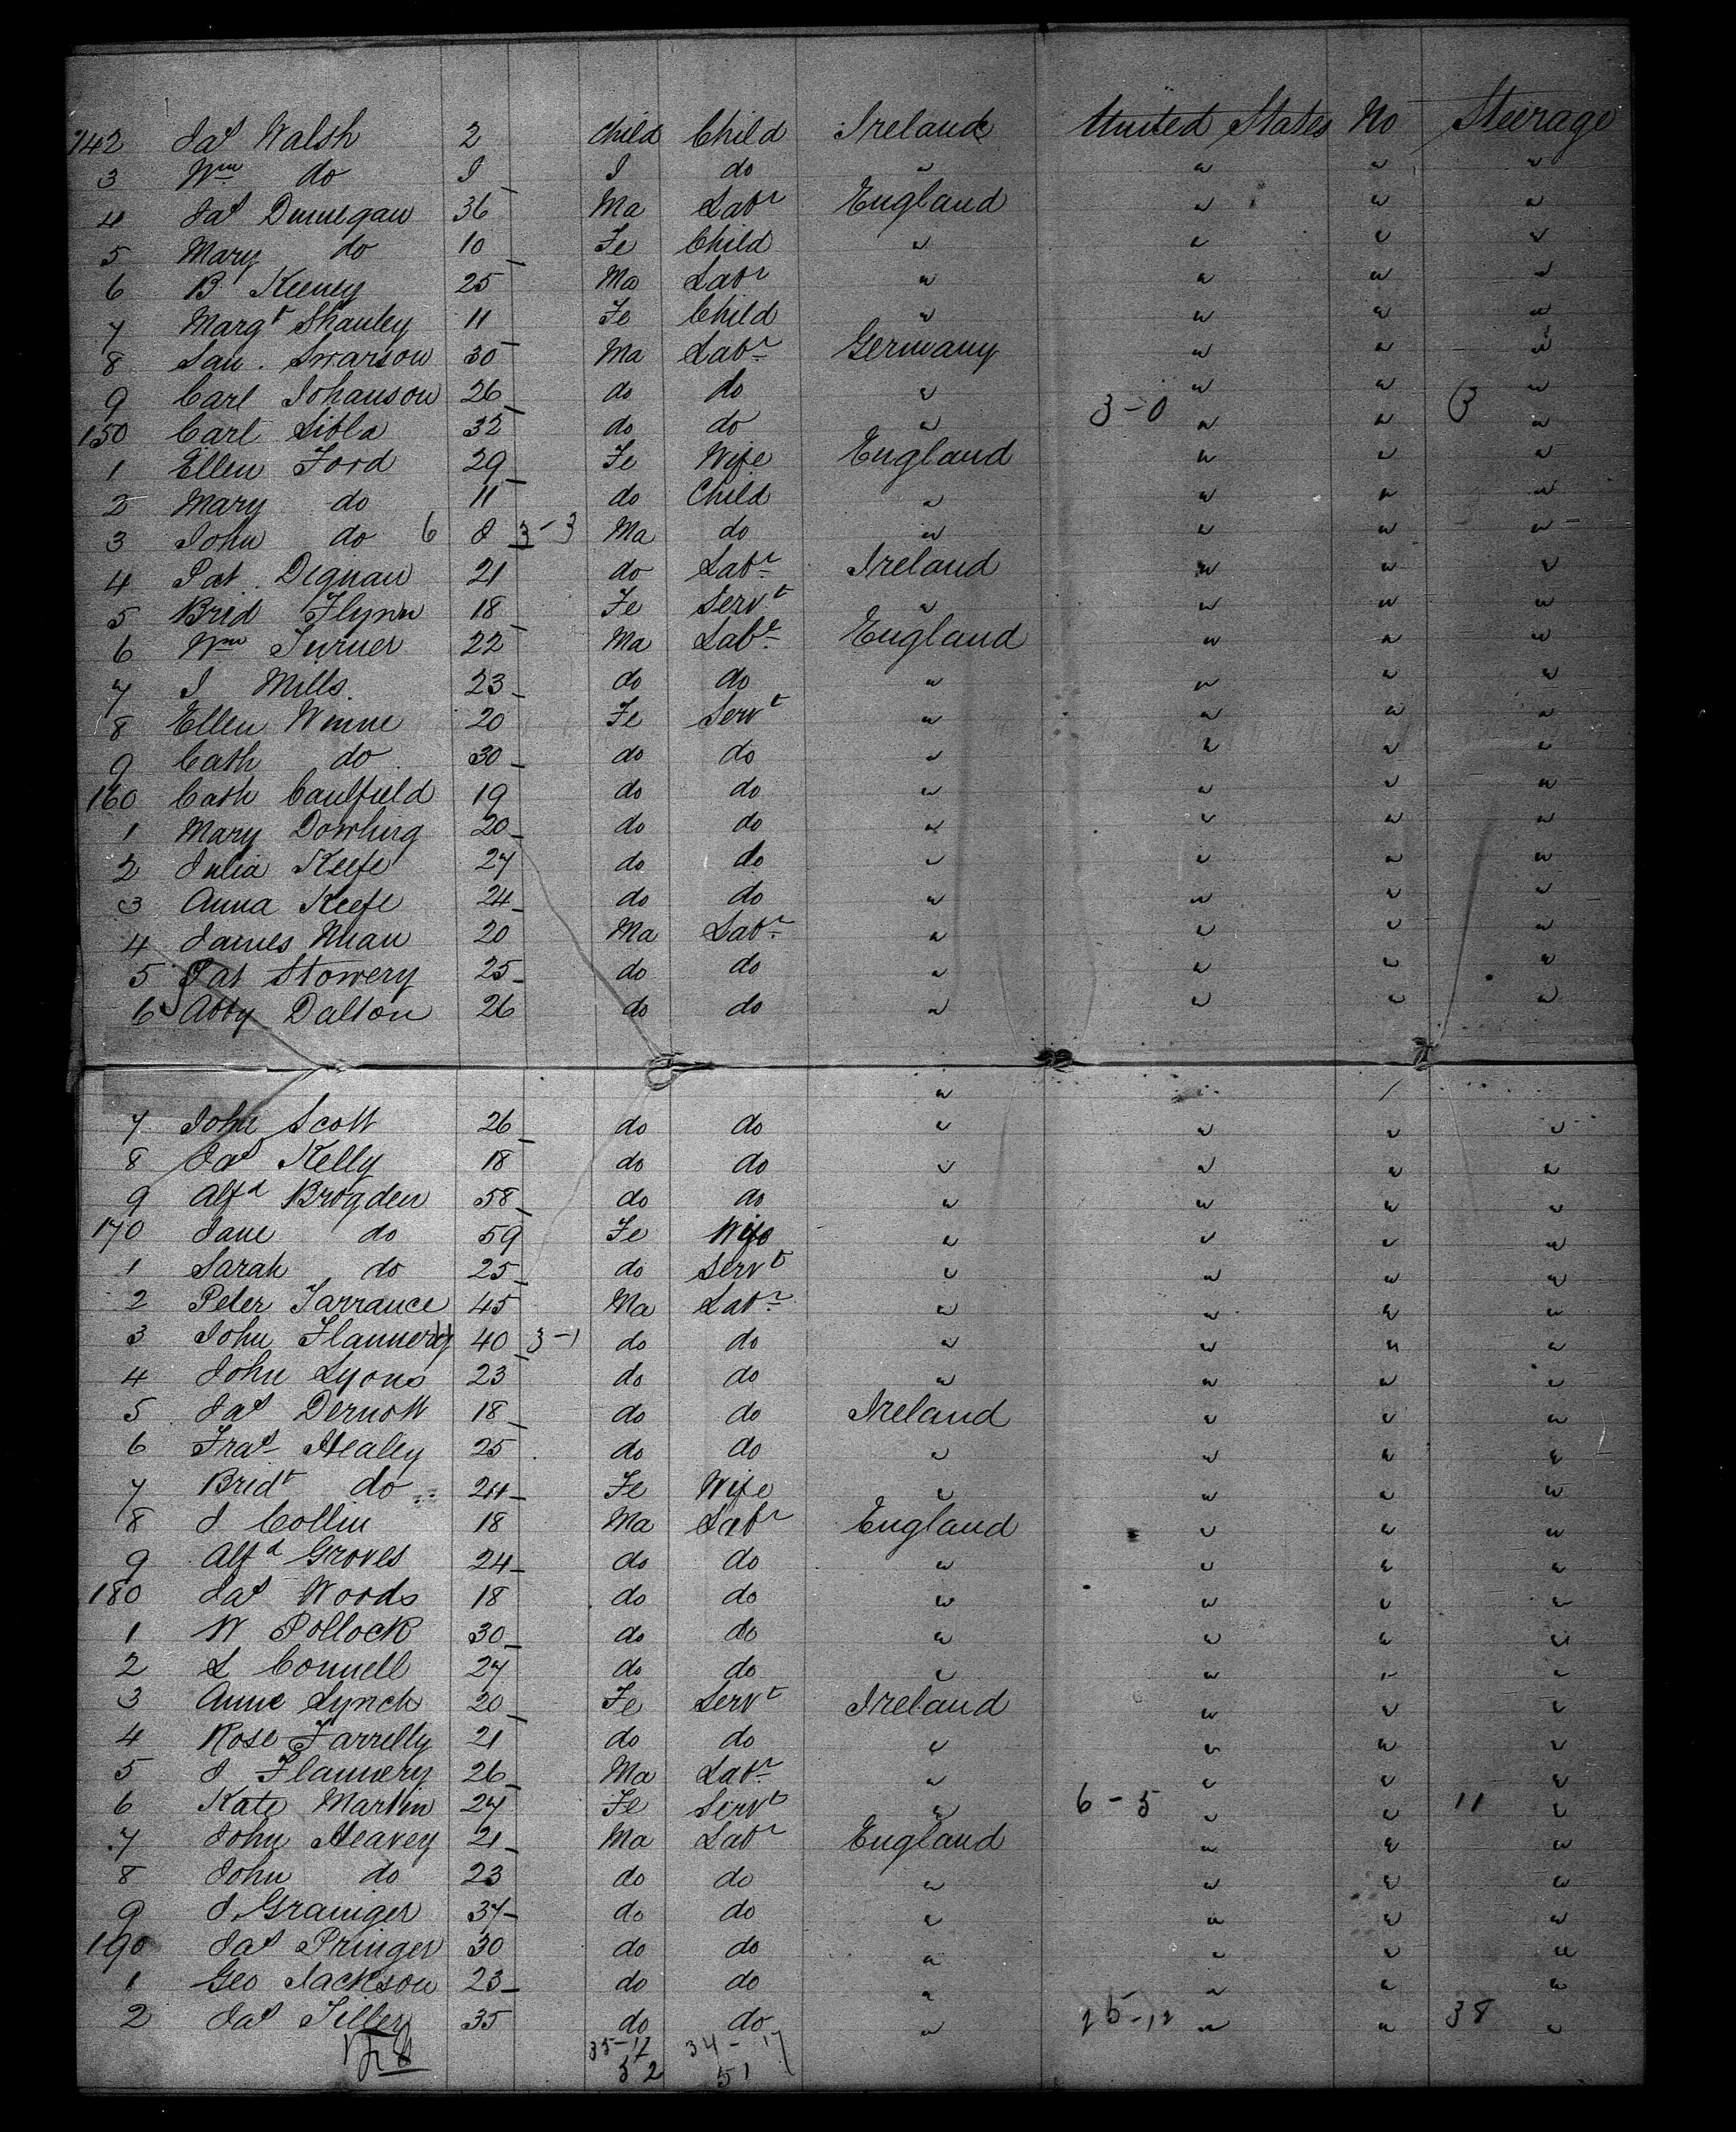 142 Jas Walsh 2 Child Child Ireland United States No Steerage
3 Wm do I I do " " " "
4 Jas Dunnegan 36 Ma Labr England " " "
5 Mary do 10 Fe Child " " " "
6 B Keeney 25 Ma Labr " " " "
7 Margt Shanley 11 Fe Child " " " "
8 San. Swarson 30 Ma Labr Germany " " "
9 Carl Johanson 26 do do " " " "
3-0 3
150 Carl Libla 32 do do " " " "
1 Ellen Ford 29 Fe Wife England " " "
2 Mary do 11 do Child " " " "
3 John do 6 8 3-3 Ma do " " " "
4 Pat Dignan 21 do Labr Ireland " " "
5 Brid Flynn 18 Fe Servt " " " "
6 Wm Turner 22 Ma Labr England " " "
7 J Mills 23 do do " " " "
8 Ellen Winne 20 Fe Servt " " " "
9 Cath do 30 do do " " " "
160 Cath Caulfield 19 do do " " " "
1 Mary Dowling 20 do do " " " "
2 Julia Keefe 27 do do " " " "
3 Anna Keefe 24 do do " " " "
4 James Nuan 20 Ma Labr " " " "
5 Pat Stowery 25 do do " " " "
6 Abby Dalton 26 do do " " " "
"
7 John Scott 26 do do " " " "
8 Jas Kelly 18 do do " " " "
9 Alfd Brogden 58 do do " " " "
170 Jane do 59 Fe Wife " " " "
1 Sarah do 25 do Servt " " " "
2 Peter Tarrance 45 Ma Labr " " " "
3 John Flannery 11 40 3-1 do do " " " "
4 John Lyons 23 do do " " " "
5 Jas Dernott 18 do do Ireland " " "
6 Fras Healey 25 do do " " " "
7 Bridt do 24 Fe Wife " " " "
8 J Collin 18 Ma Labr England " " "
9 Alfd Groves 24 do do " " " "
180 Jas Woods 18 do do " " " "
1 W Pollock 30 do do " " " "
2 L Connell 27 do do " " " "
3 Anne Lynch 20 Fe Servt Ireland " " "
4 Rose Farrelly 21 do do " " " "
5 J Flannery 26 Ma Labr " " " "
6 Kate Martin 27 Fe Servt " 6-5 " " 11 "
7 John Heavey 21 Ma Labr England " " "
8 John do 23 do do " " " "
9 J. Grainger 37 do do " " " "
190 Jas Pringer 30 do do " " " "
1 Geo Jackson 23 do do " " " "
2 Jas Tilley 35 do do " 26-12 " " 38 "
35-17 34-17
52 51